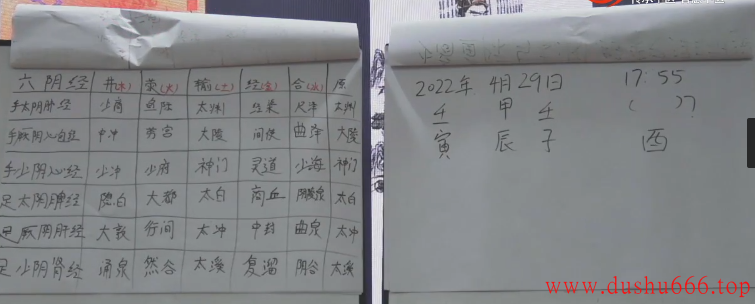 六阴经 井(木) 荥(火) 输(土) 经(金) 合(水) 原
手太阴肺经 少商 鱼际 太渊 经渠 尺泽 太渊
手厥阴心包经 中冲 劳宫 大陵 间使 曲泽 大陵
手少阴心经 少冲 少府 神门 灵道 少海 神门
足太阴脾经 隐白 大都 太白 商丘 阴陵泉 太白
足厥阴肝经 大敦 行间 太冲 中封 曲泉 太冲
足少阴肾经 涌泉 然谷 太溪 复溜 阴谷 太溪
2022年 4月29日 17:55
壬 甲 壬 ( )?
寅 辰 子 酉
www.dushu666.top